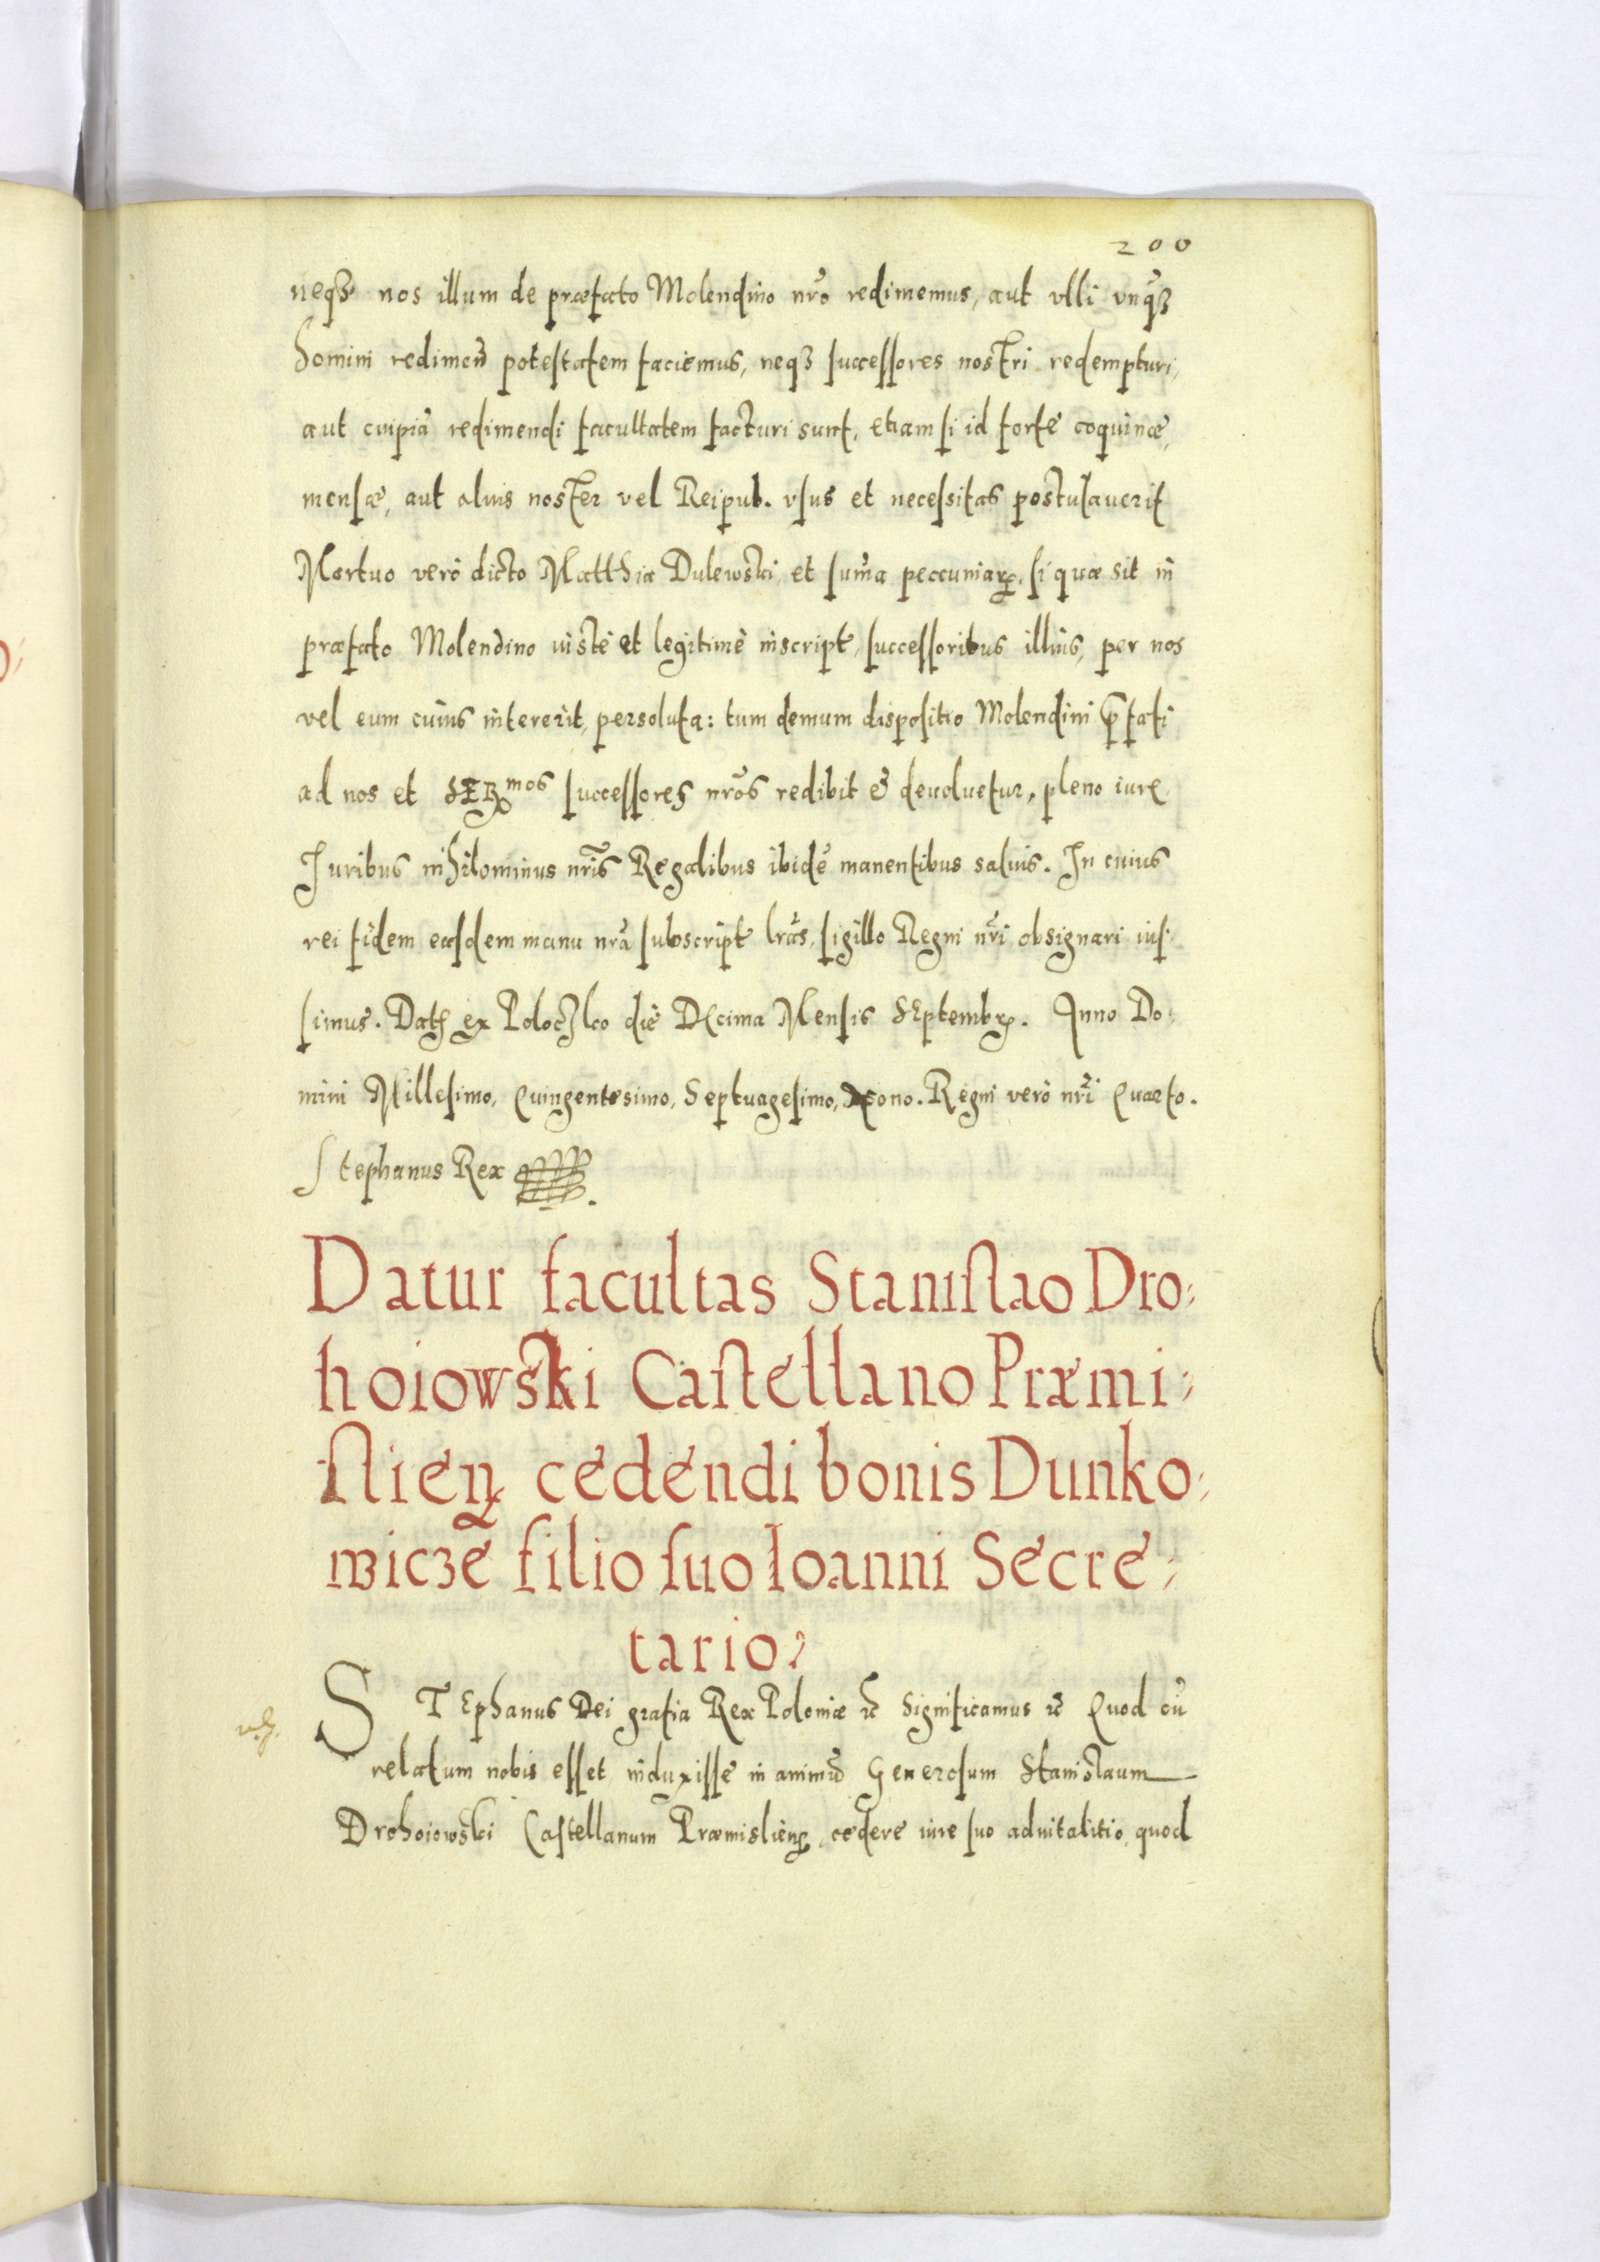 200
neqꝫ nos illum de præfato Molendino nr̃o redimemus, aut vlli vnq̃ꝫ
homini redimen̄ potestatem faciemus, neqꝫ successores nostri redempturi,
aut cuipiā redimendi facultatem facturi sunt, etiam si id forte coquinæ,
mensæ, aut alius noster vel Reipub. vsus et necessitas postulauerit
Mortuo verò dicto Matthia Dulewski, et sum̄a peccuniarꝝ, si quæ sit in
præfato Molendino iustè et legitimè inscript, successoribus illius, per nos
vel eum cuius intererit, persoluta: tum demum dispositio Molendini p̄fati
ad nos et SERmos successores nr̃os redibit & deuoluetur, pleno iure
Iuribus nihilominus nr̃is Regalibus ibidē manentibus saluis. In cuius
rei fidem easdem manu nr̃a subscript lr̃as, sigillo Regni nr̃i obsignari ius
simus. Dat ex Poloczko die Decima Mensis Septembrꝭ. Anno Do⸗
mini Millesimo, Quingentesimo, Septuagesimo, Nono. Regni verò nr̃i Quarto.
Stephanus Rex
Datur facultas Stanislao Dro⸗
hoiowski Castellano Præmi⸗
slien̄ cedendi bonis Dunko⸗
wicze filio suo Ioanni Secre⸗
tario
STEphanus Dei gratia Rex Poloniæ &c̃ Significamus &c̃ Quod cū
relatum nobis esset induxisse in animū Generosum Stanislaum
Drohoiowski Castellanum Præmislien̄, cedere iure suo aduitalitio, quod